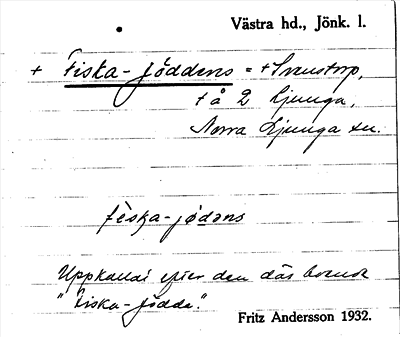 Västra hd., Jönk. l.
+ Fiska-Jöddens = + Svenstorp,
+ å 2 Ljunga,
Norra Ljunga sn.
fèska-jödans
Uppkallat efter den där boende
"Fiska-Jödde".
Fritz Andersson 1932.